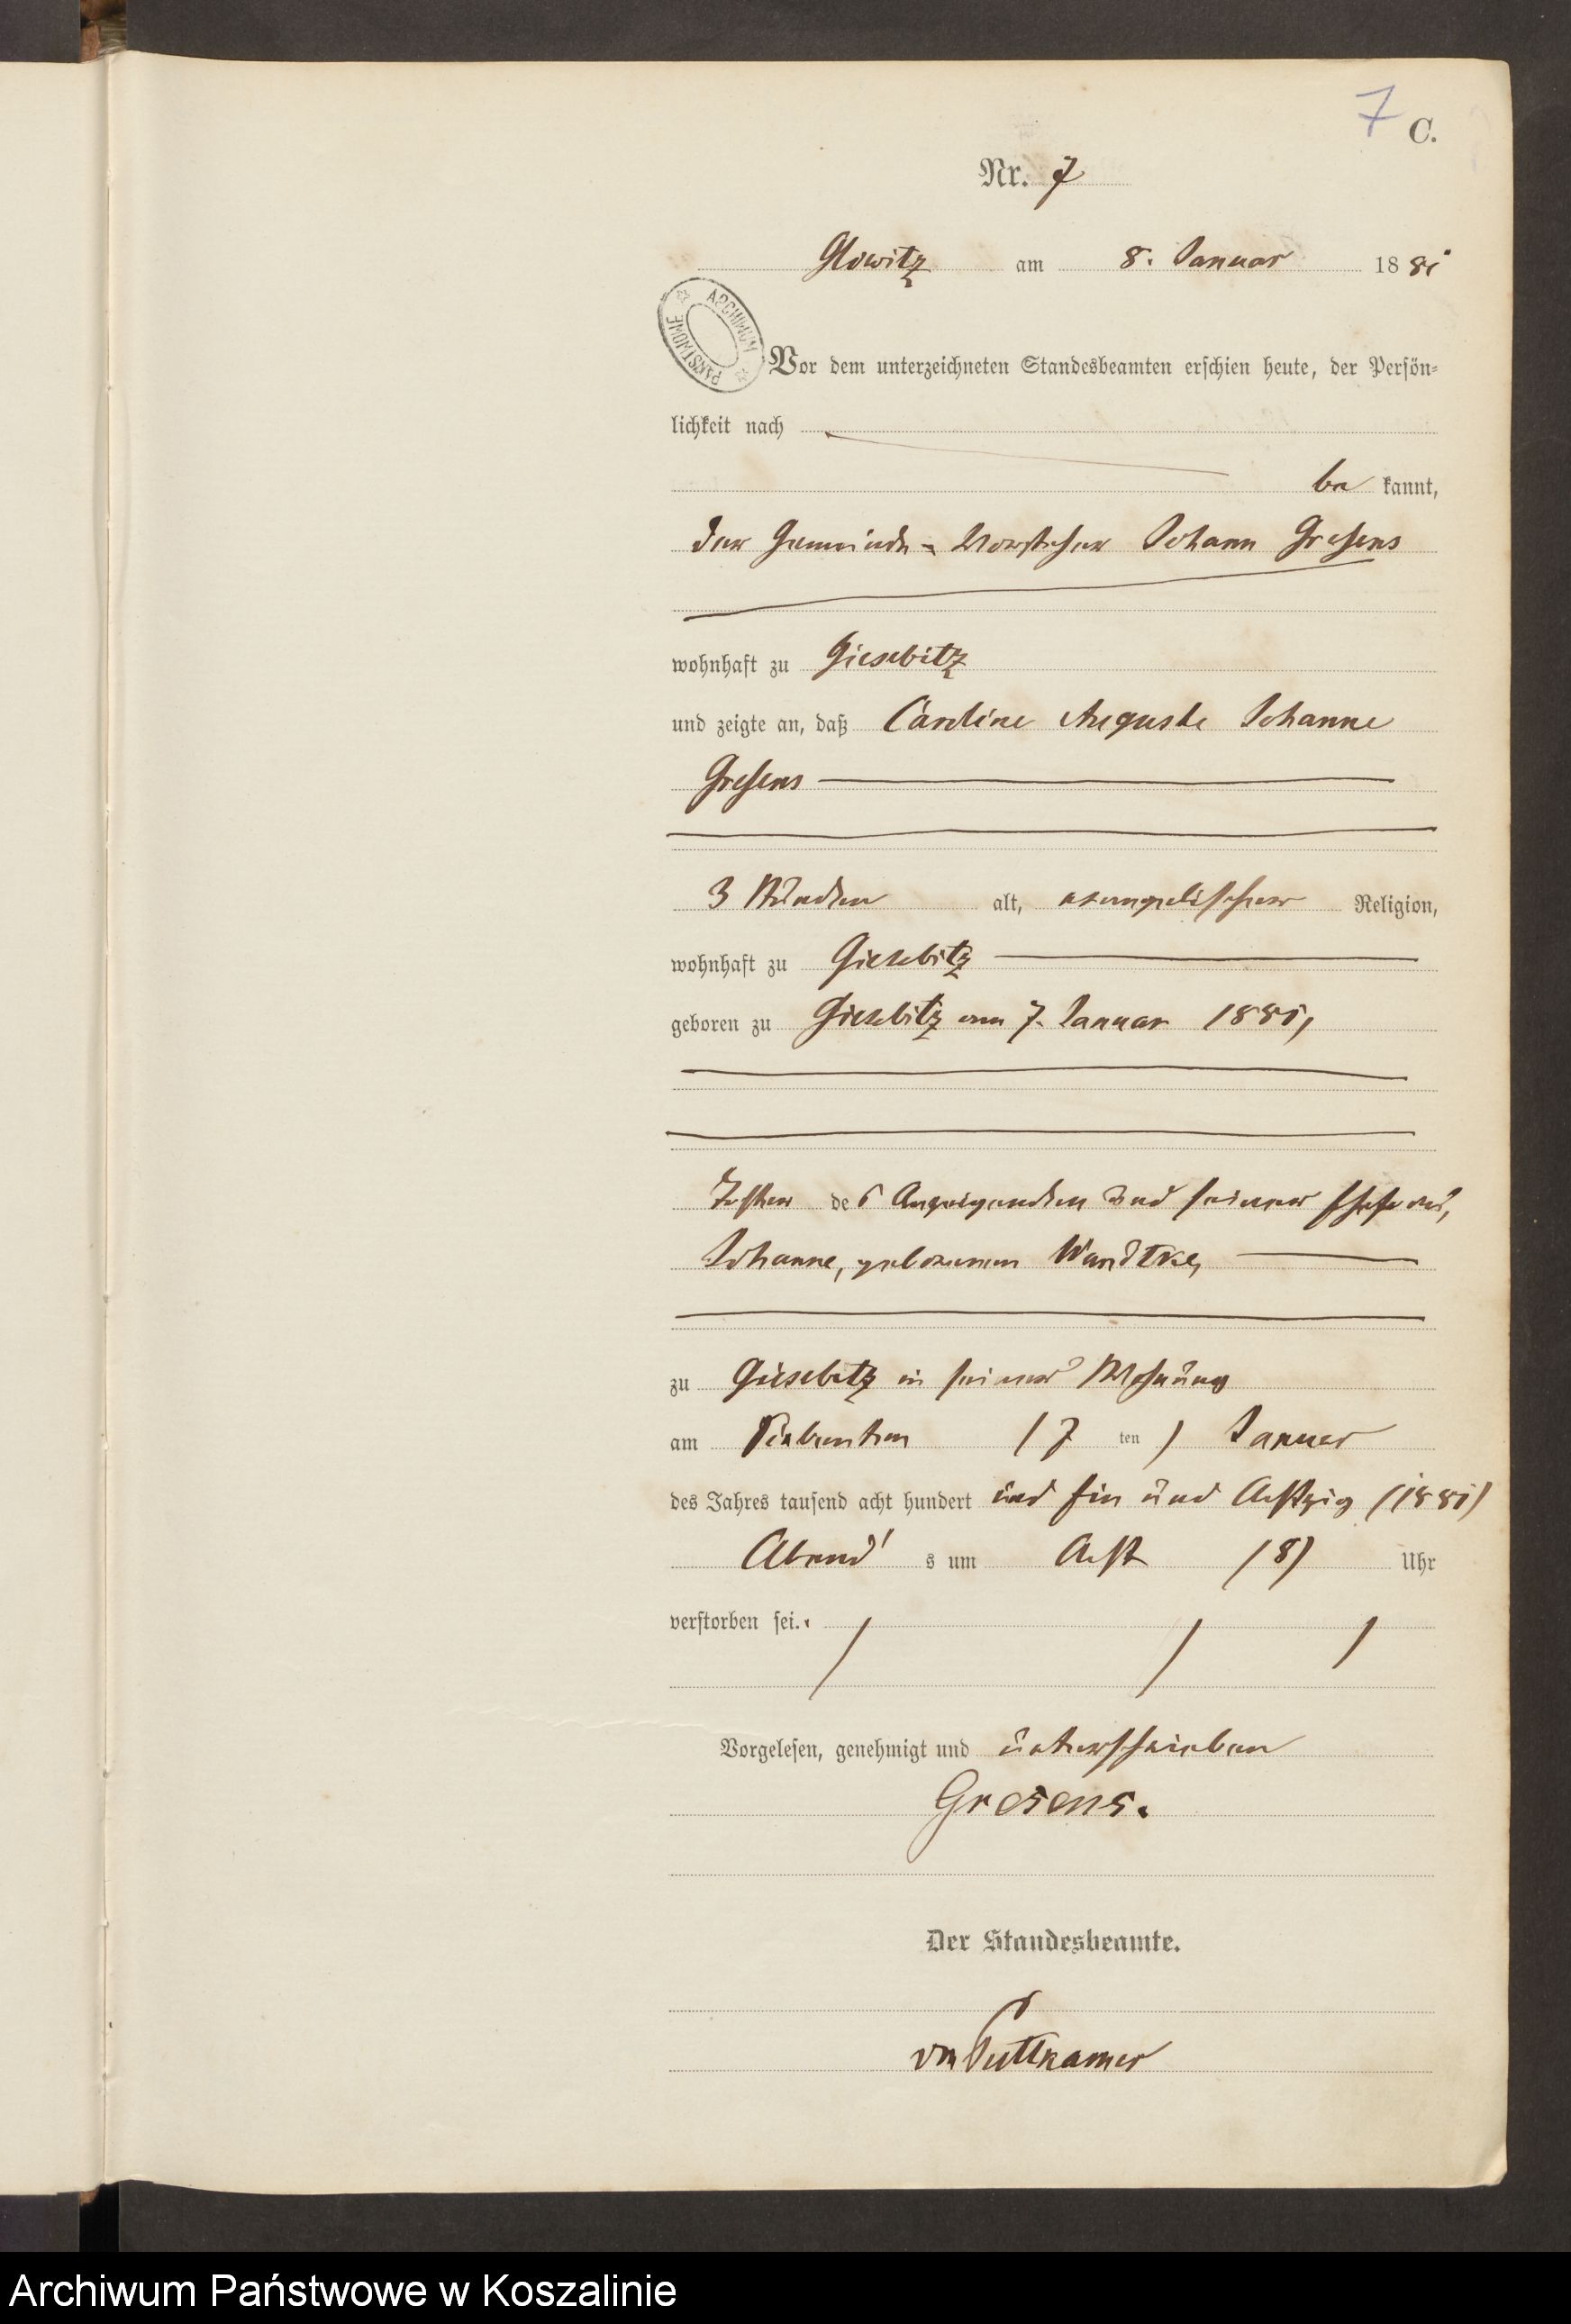 7 C.
Nr. 7
Glowitz am 8. Januar 1881
ARCHIWUM PAŃSTWOWE
Vor dem unterzeichneten Standesbeamten erschien heute, der Persön-
lichkeit nach
be kannt,
der Gemeinde-Vorsteher Johann Gresens
wohnhaft zu Giesebitz
und zeigte an, daß Caroline Auguste Johanne
Gresens
3 Stunden alt, evangelischer Religion,
wohnhaft zu Giesebitz
geboren zu Giesebitz am 7. Januar 1881,
Tochter des Anzeigenden und seiner Ehefrau,
Johanne, geborenen Wandtke,
zu Giesebitz in seiner Wohnung
am Siebenten (7 ten) Januar
des Jahres tausend acht hundert und Ein und Achtzig (1881)
Abend s um Acht (8) Uhr
verstorben sei.
Vorgelesen, genehmigt und unterschrieben
Gresens.
Der Standesbeamte.
von Puttkamer
Archiwum Państwowe w Koszalinie